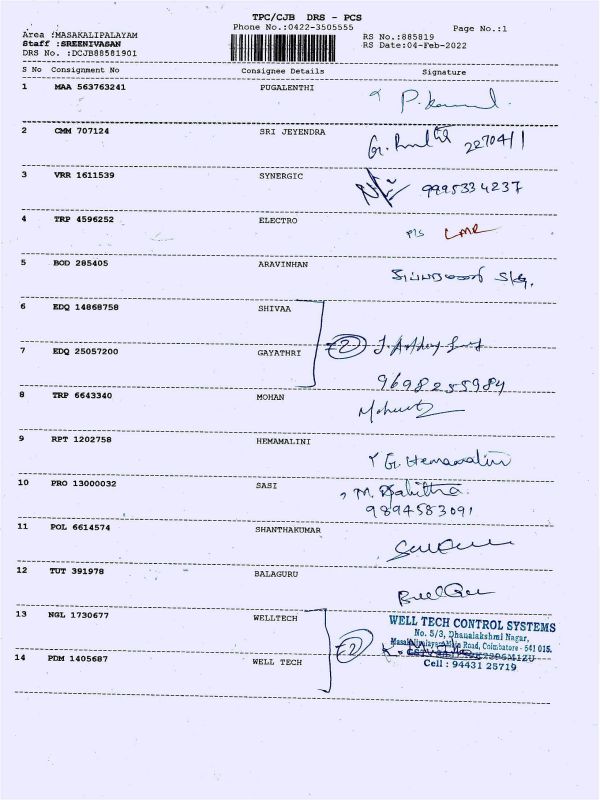 TPC/CJB DRS - PCS
Phone No.:0422-3505555
Page No.:1
Area :MASAKALIPALAYAM
RS No.:885819
Staff :SREENIVASAN
RS Date:04-Feb-2022
DRS No. :DCJB88581901
S No Consignment No Consignee Details Signature
1 MAA 563763241 PUGALENTHI
2 CMM 707124 SRI JEYENDRA
227041
3 VRR 1611539 SYNERGIC 9995334237
4 TRP 4596252 ELECTRO
5 BOD 285405 ARAVINHAN
6 EDQ 14868758 SHIVAA
7 EDQ 25057200 GAYATHRI
9698255984
8 TRP 6643340 MOHAN
9 RPT 1202758 HEMAMALINI
G. Hemamalini
10 PRO 13000032 SASI
9894583091
11 POL 6614574 SHANTHAKUMAR
12 TUT 391978 BALAGURU
13 NGL 1730677 WELLTECH
WELL TECH CONTROL SYSTEMS
No. 5/3, Dhanalakshmi Nagar,
Masakalipalayam Main Road, Coimbatore - 641 015.
14 PDM 1405687 WELL TECH
Cell : 94431 25719